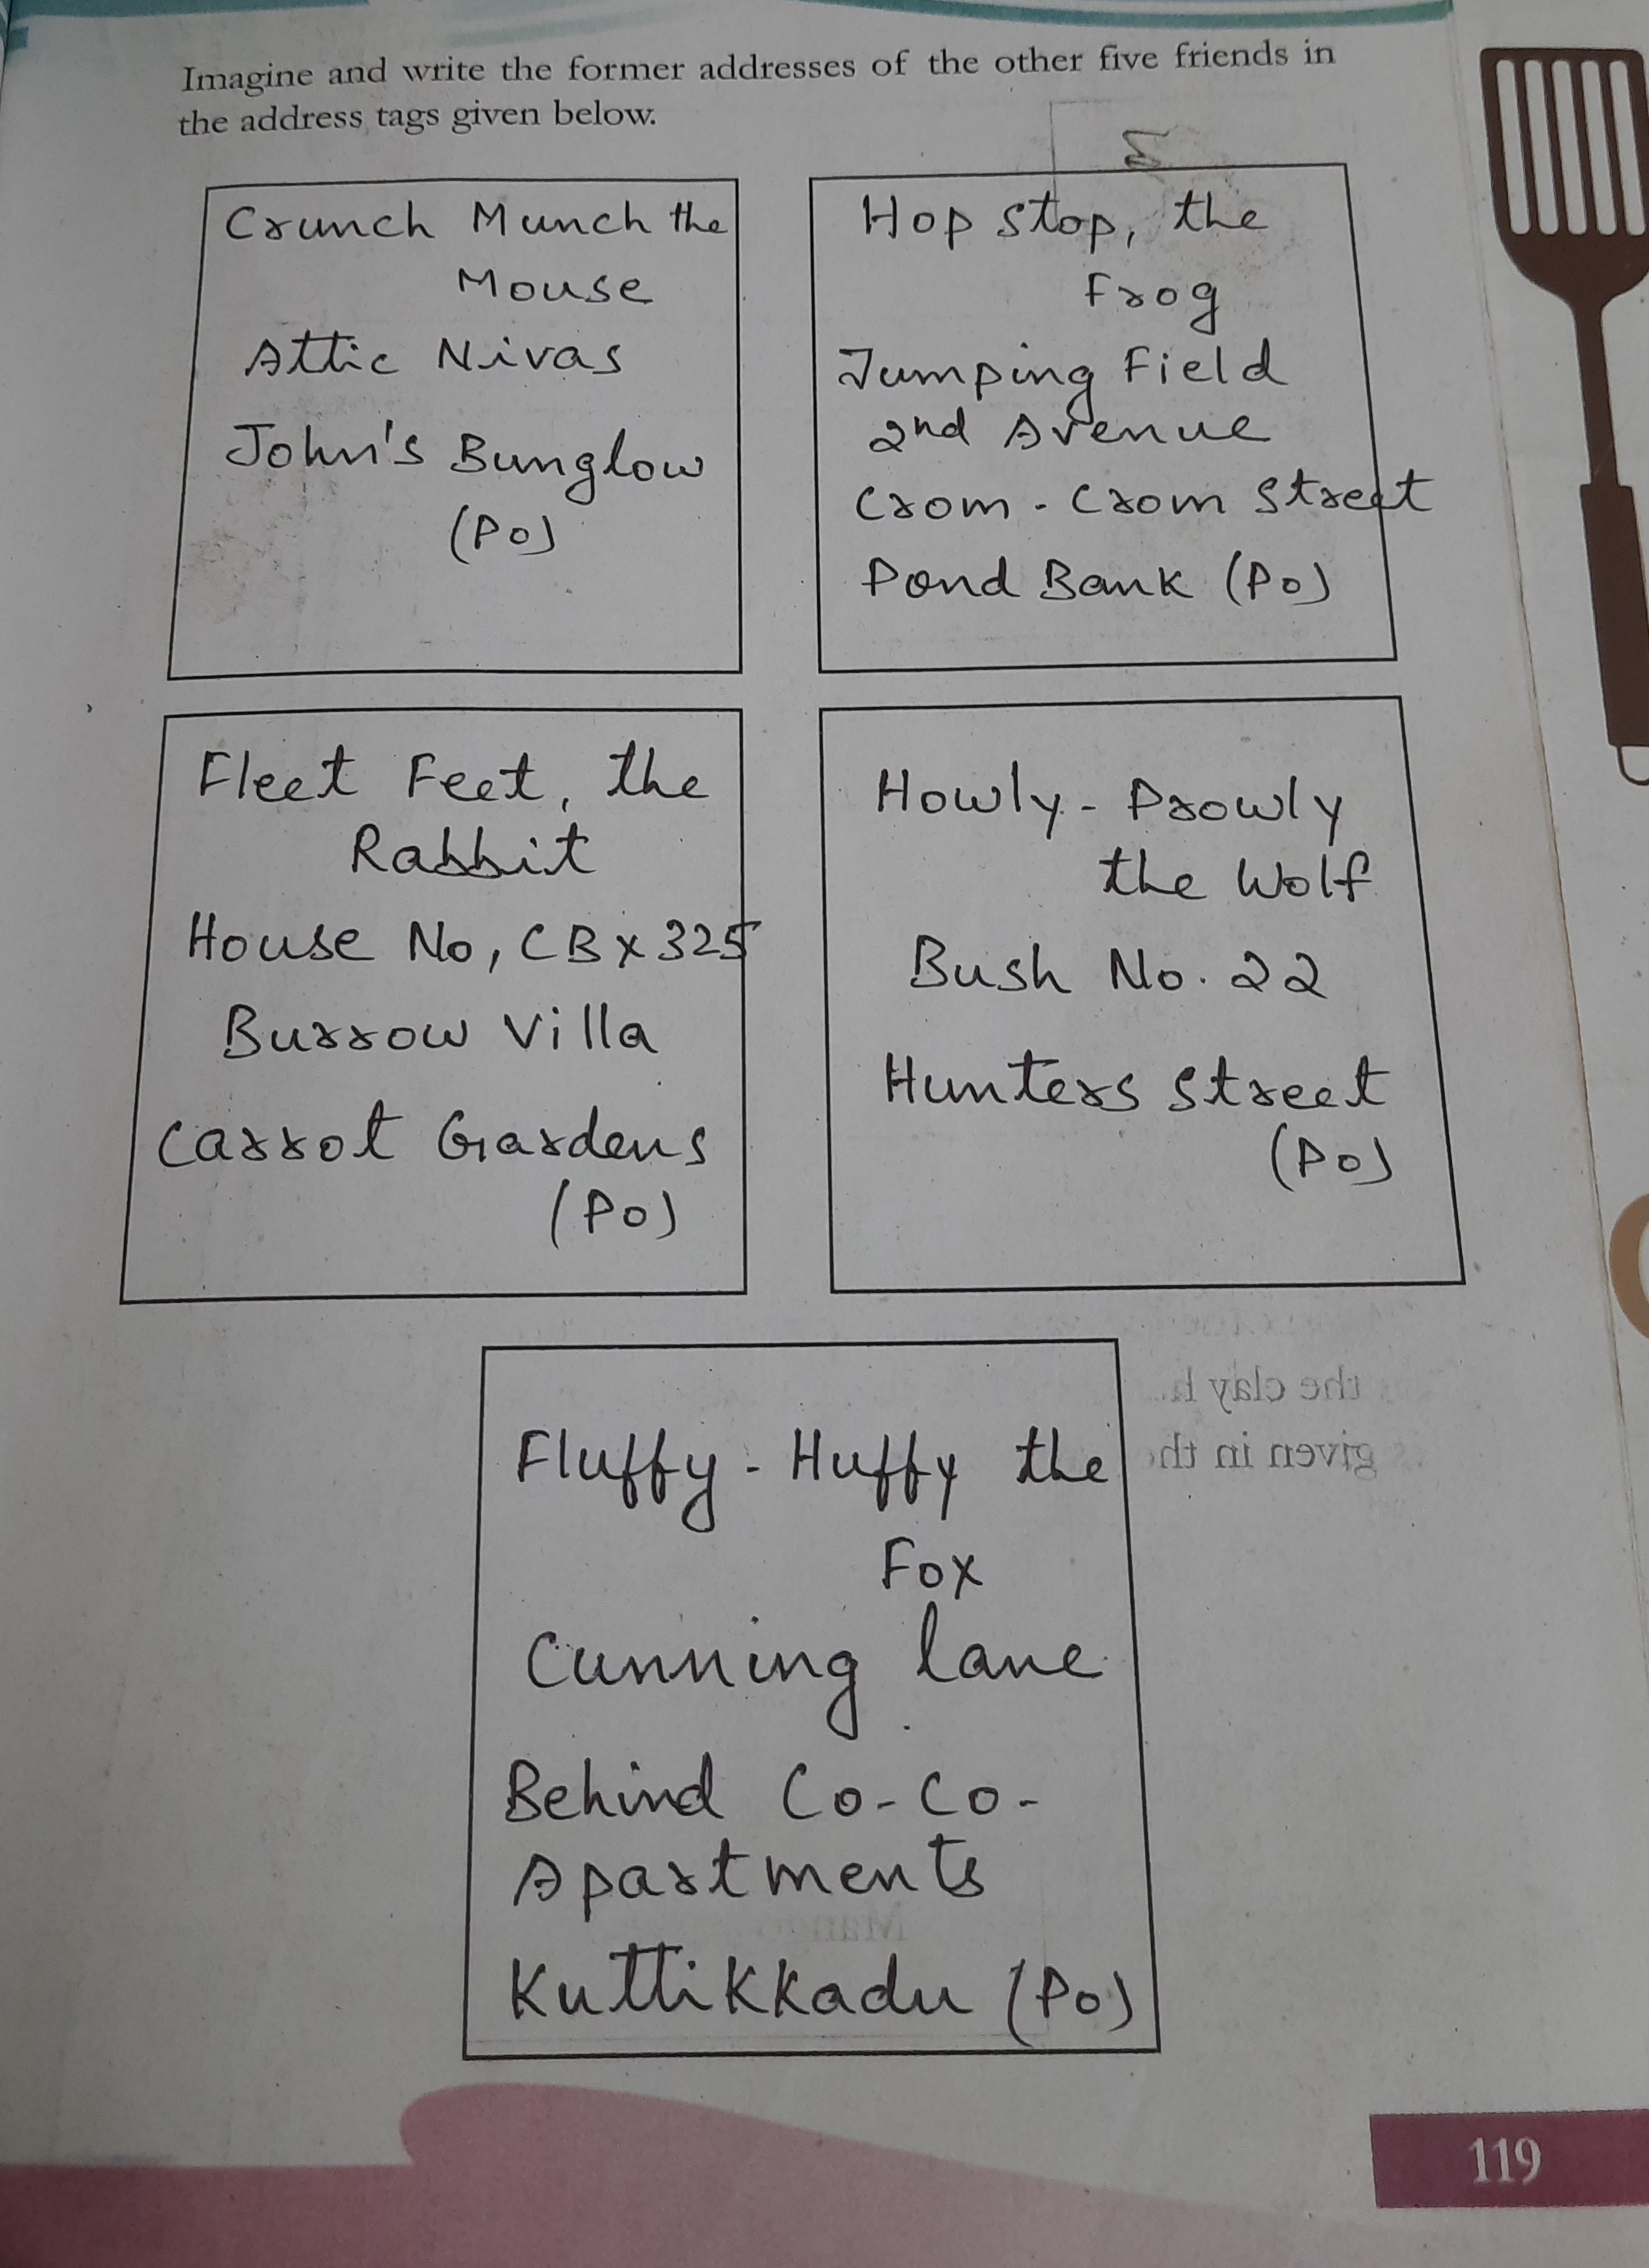 Imagine and write the former addresses of the other five friends in
the address tags given below.
Crunch Munch the
Mouse
Attic Nivas
John's Bunglow
(Po)
Hop stop, the
Frog
Jumping Field
2nd Avenue
Crom - Crom Street
Pond Bank (Po)
Fleet Feet, the
Rabbit
House No, CB x 325
Burrow Villa
Carrot Gardens
(Po)
Howly - Prowly
the Wolf
Bush No. 22
Hunters Street
(Po)
Fluffy - Huffy the
Fox
Cunning lane
Behind Co-Co-
Apartments
Kuttikkadu (Po)
119